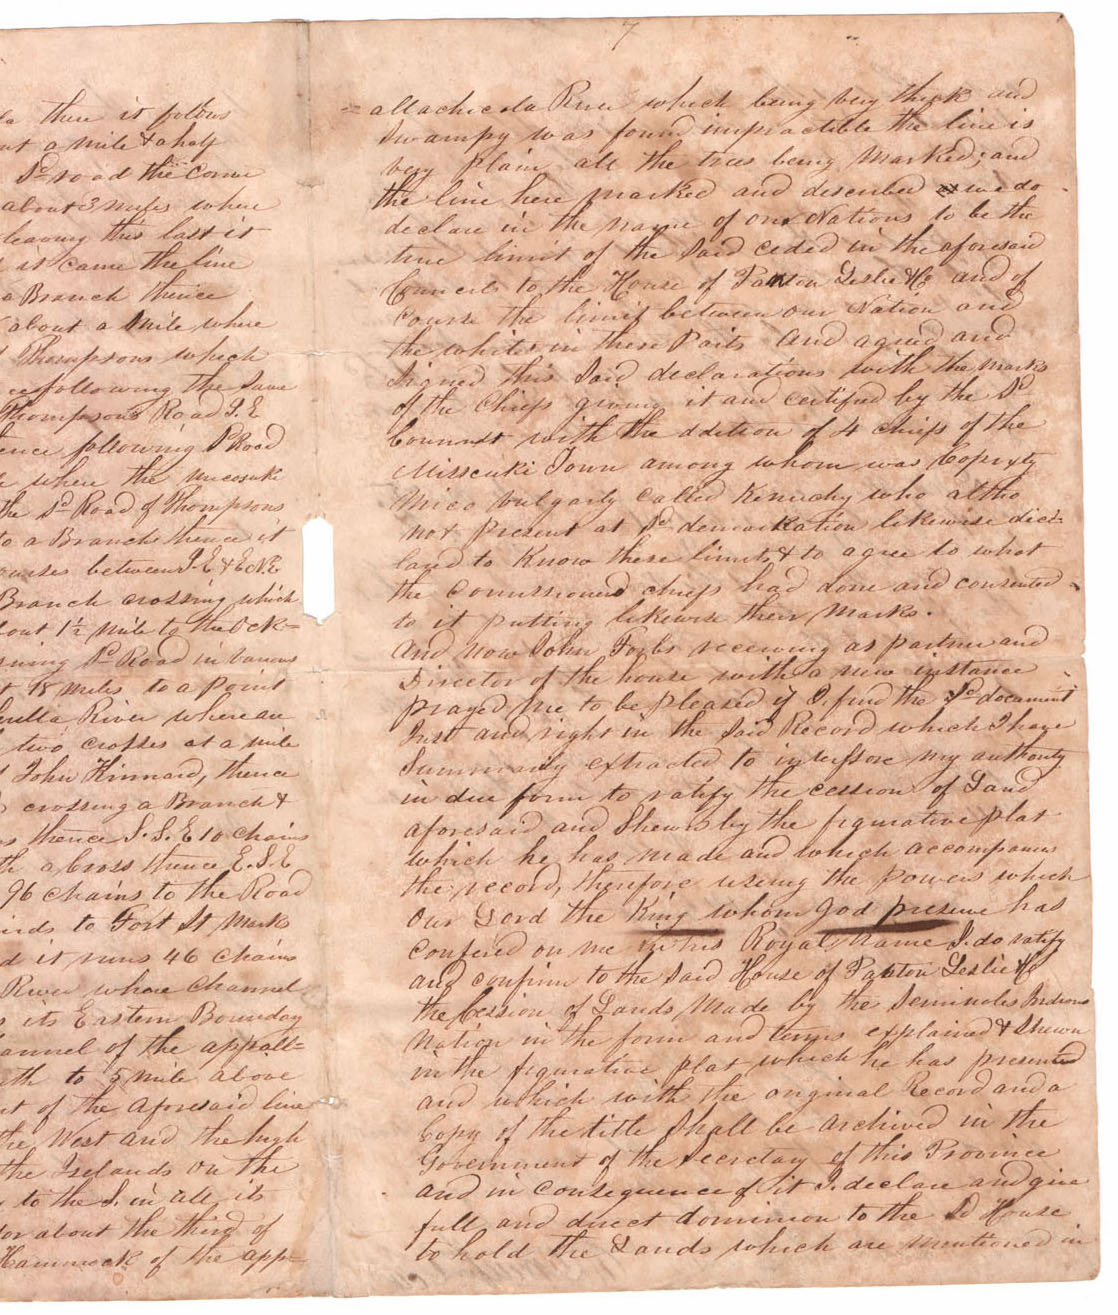 there it follows
out a mile & a half
Sd road the corner
about 3 miles where
leaving this last it
it came the line
a Branch thence
about a Mile where
Thompsons which
following the Same
Thompsons Road S.E
ence following Sd Road
where the micosuke
the Sd Road of Thompsons
to a Branch thence it
courses between S.E & E.N.E
Branch crossing which
bout 1½ mile to the Ock=
Sd Road in various
18 miles to a point
River where an
two crosses at a mile
John Kinnard, thence
crossing a Branch &
thence S.S.E 10 chains
th a Cross thence E.S.E
96 chains to the Road
to Fort St Marks
d it runs 46 Chains
River whose Channel
its Eastern Bounday
annel of the appall=
to 5 mile above
of the aforesaid line
the West and the high
the Irelands on the
to the S. in all its
or about the third of
Hammock of the app=
7
=allachicola River which being very thick and
Swampy was found impractible the line is
very plain all the trees being marked; and
the line here marked and described we do
declare in the name of our Nations to be the
true limit of the Said ceded in the aforesaid
Council to the House of Panton Leslie & Co and of
Course the limit between our Nation and
the whites in these Parts And agreed and
Signed this Said declarations with the marks
of the Chiefs giving it and certified by the Sd
with the addition of 4 chiefs of the
Misscuki Town among whom was
Mico vulgarly called who altho
not Present at Sd demarkation likewise dic=
lared to know these limits & to agree to what
the Commissioned chiefs had done and consented
to it putting likewise their Marks.
And now John Forbs receiving as partner and
Director of the house with a new instance
prayed me to be pleased if I find the Sd document
Just and right in the Said Record which I have
Summarily extracted to my authority
in due form to ratify the cession of Land
aforesaid and Shewn by the figurative plat
which he has made and which accompanies
the record, therefore using the powers which
Our Lord the King whom god preserve has
confered on me in his Royal Name I do ratify
and confirm to the Said House of Panton Leslie & Co
the Cession of Lands Made by the Seminoles Indians
Nation in the form and terms explained & Shewn
in the figurative plat which he has presented
and which with the original Record and a
Copy of the title Shall be archived in the
Government of the Secretary of this Province
and in consequence of it I declare and give
full and direct dominion to the Sd House
to hold the Lands which are mentioned in